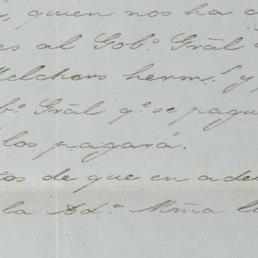 quien nos ha
es al Gob.º Gräl
elchers herm.ˢ y
b.º Gräl q.º se pague
los pagará.
tos de que en ade
la Ad.ª Mña la